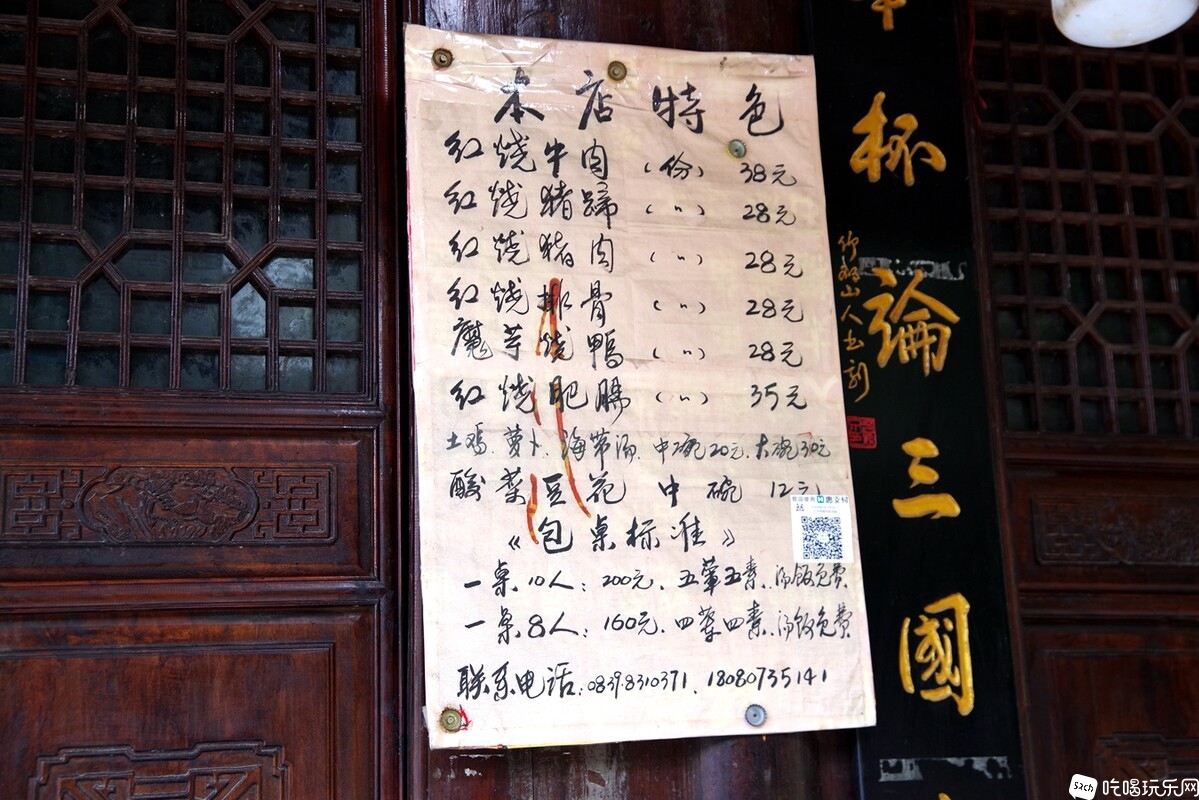 本店特色
红烧牛肉 （份） 38元
红烧猪蹄 （〃） 28元
红烧猪肉 （〃） 28元
红烧排骨 （〃） 28元
魔芋烧鸭 （〃） 28元
红烧肥肠 （〃） 35元
土鸡.萝卜.海带汤.中碗20元.大碗30元
酸菜豆花 中碗 12元
《包桌标准》
一桌10人：200元.五荤五素.汤饭免费
一桌8人：160元.四荤四素.汤饭免费
联系电话：0839.8310371、18080735141
杯論三國
山人书刻
吃喝玩乐网